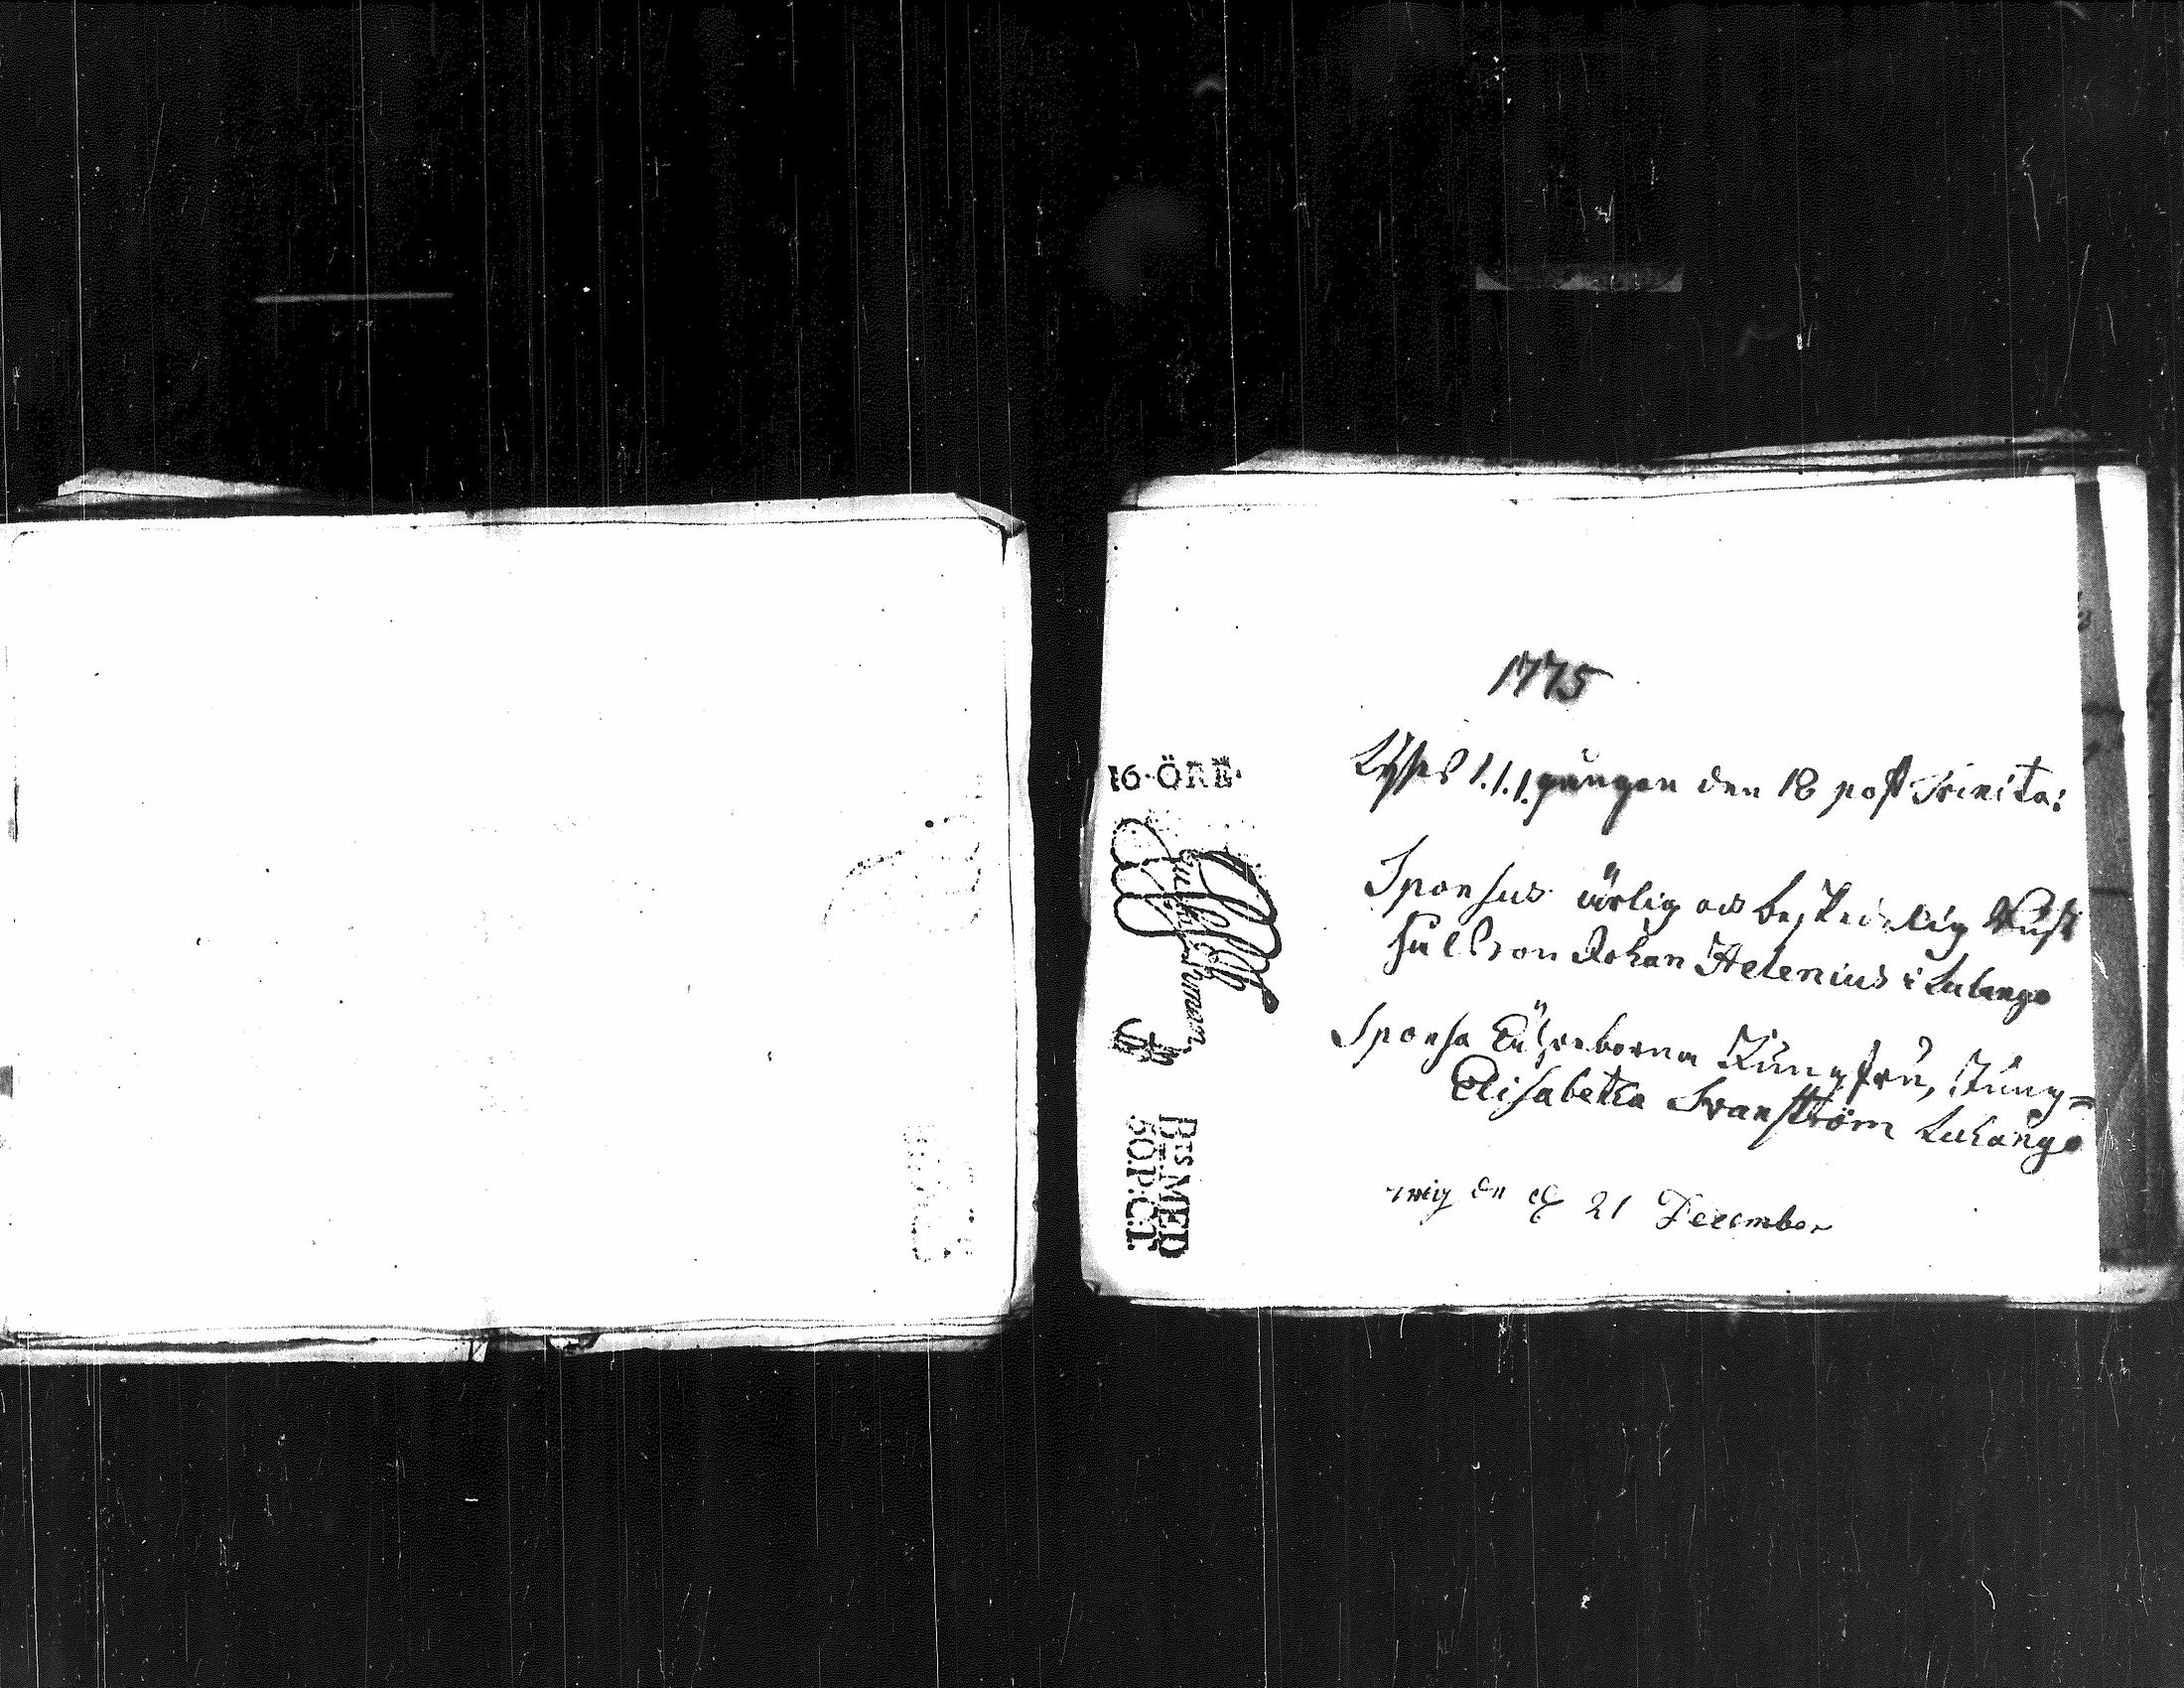 1775
Lyses 1.1.1. gången den 18 post Trinita:
Sponsus ärlig och beskedelig Rust
hålls son Johan Helenius i Lulango
Sponsa Ähreborna Jungfru, Jung=
Elisabetha Svanström Luhango
wig de 21 December
16·ÖRE·
BTS MED
50.P:CT.